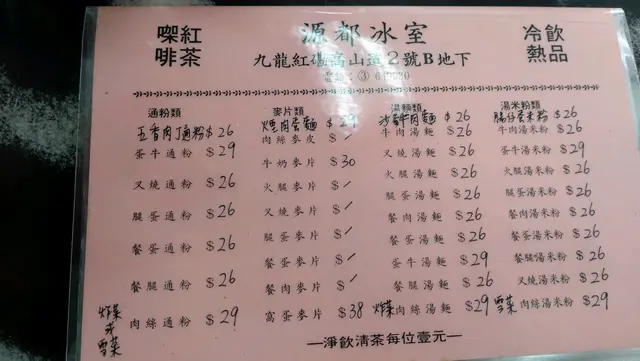 㗎紅
啡茶
源都冰室
九龍紅磡高山道2號B地下
冷飲
熱品
通粉類
五香肉丁通粉 $26
蛋牛通粉 $29
叉燒通粉 $26
腿蛋通粉 $26
餐蛋通粉 $26
餐腿通粉 $26
炸菜或雪菜 肉絲通粉 $29
麥片類
肉絲麥皮 $/
牛奶麥片 $30
火腿麥片 $/
叉燒麥片 $/
腿蛋麥片 $/
餐蛋麥片 $/
餐肉麥片 $/
窩蛋麥片 $38
湯麵類
沙爹牛肉麵 $26
牛肉湯麵 $26
叉燒湯麵 $26
火腿湯麵 $26
腿蛋湯麵 $26
餐肉湯麵 $26
餐蛋湯麵 $26
蛋牛湯麵 $29
餐腿湯麵 $26
炸菜 肉絲湯麵 $29
湯米粉類
腸仔蛋米粉 $26
牛肉湯米粉 $26
蛋牛湯米粉 $29
火腿湯米粉 $26
腿蛋湯米粉 $26
餐肉湯米粉 $26
餐蛋湯米粉 $26
餐腿湯米粉 $26
叉燒湯米粉 $26
雪菜 肉絲湯米粉 $29
—淨飲清茶每位壹元—